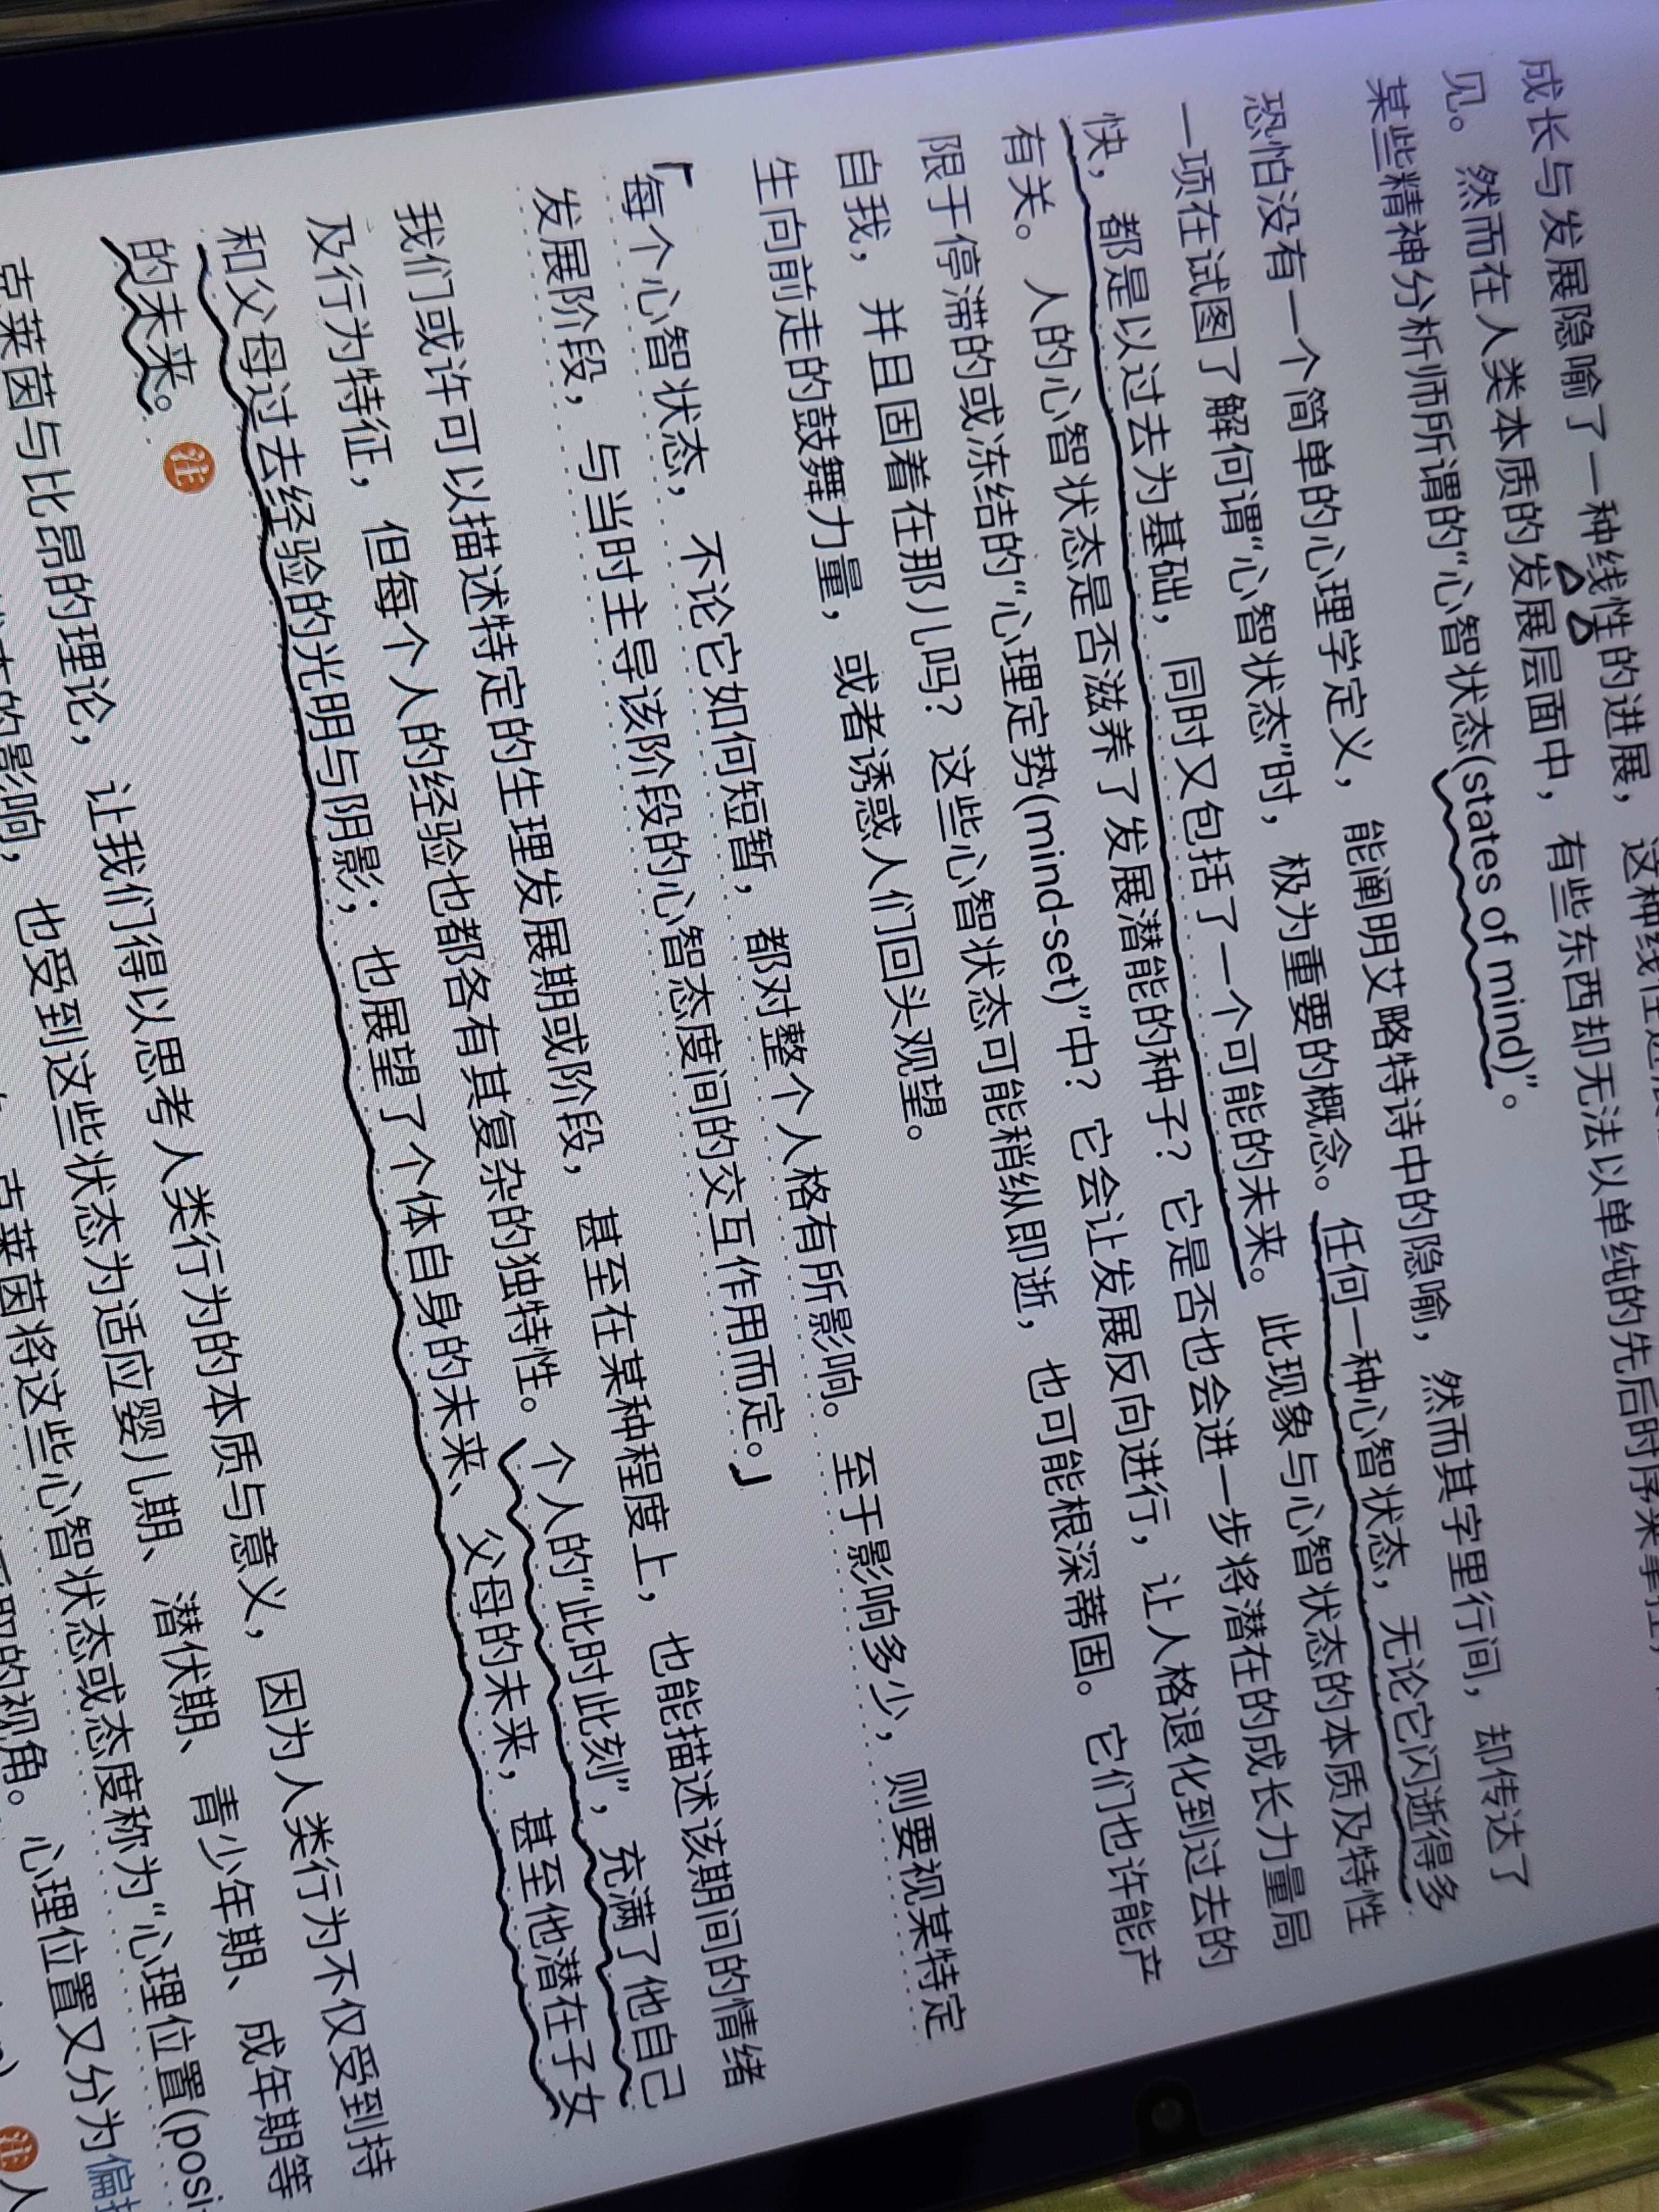 成长与发展隐喻了一种线性的进展，
见。然而在人类本质的发展层面中，有些东西却无法以单纯的先后时序来
某些精神分析师所谓的“心智状态(states of mind)”。
恐怕没有一个简单的心理学定义，能阐明艾略特诗中的隐喻，然而其字里行间，却传达了
一项在试图了解何谓“心智状态”时，极为重要的概念。任何一种心智状态，无论它闪逝得多
快，都是以过去为基础，同时又包括了一个可能的未来。此现象与心智状态的本质及特性
有关。人的心智状态是否滋养了发展潜能的种子？它是否也会进一步将潜在的成长力量局
限于停滞的或冻结的“心理定势(mind-set)”中？它会让发展反向进行，让人格退化到过去的
自我，并且固着在那儿吗？这些心智状态可能稍纵即逝，也可能根深蒂固。它们也许能产
生向前走的鼓舞力量，或者诱惑人们回头观望。
「每个心智状态，不论它如何短暂，都对整个人格有所影响。至于影响多少，则要视某特定
发展阶段，与当时主导该阶段的心智态度间的交互作用而定。」
我们或许可以描述特定的生理发展期或阶段，甚至在某种程度上，也能描述该期间的情绪
及行为特征，但每个人的经验也都各有其复杂的独特性。个人的“此时此刻”，充满了他自己
和父母过去经验的光明与阴影；也展望了个体自身的未来、父母的未来，甚至他潜在子女
的未来。注
克莱茵与比昂的理论，让我们得以思考人类行为的本质与意义，因为人类行为不仅受到持
的影响，也受到这些状态为适应婴儿期、潜伏期、青少年期、成年期等
克莱茵将这些心智状态或态度称为“心理位置(posi
的视角。心理位置又分为偏
注人